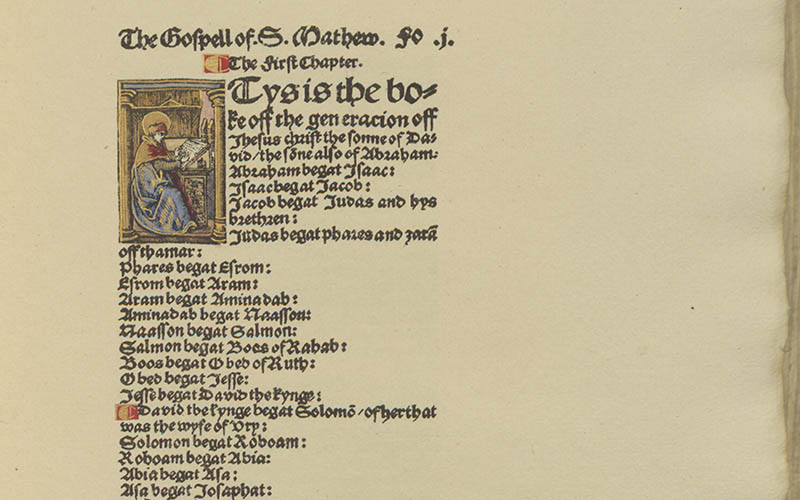 The Gospell of. S. Mathew. Fo .j.
The First Chapter.
Tys is the bo-
ke off the gen eracion off
Jhesus christ the sonne of Da-
vid/the sōne also of Abraham.
Abraham begat Isaac:
Isaac begat Jacob:
Jacob begat Judas and hys
brethren:
Judas begat phares and zarā
off thamar:
Phares begat Esrom:
Esrom begat Aram:
Aram begat Aminadab:
Aminadab begat Naasson:
Naasson begat Salmon:
Salmon begat Boos of Rahab:
Boos begat Obed of Ruth:
Obed begat Jesse:
Jesse begat David the kynge:
David the kynge begat Solomō/of her that
was the wyfe of Vry:
Solomon begat Roboam:
Roboam begat Abia:
Abia begat Asa:
Asa begat Josaphat: